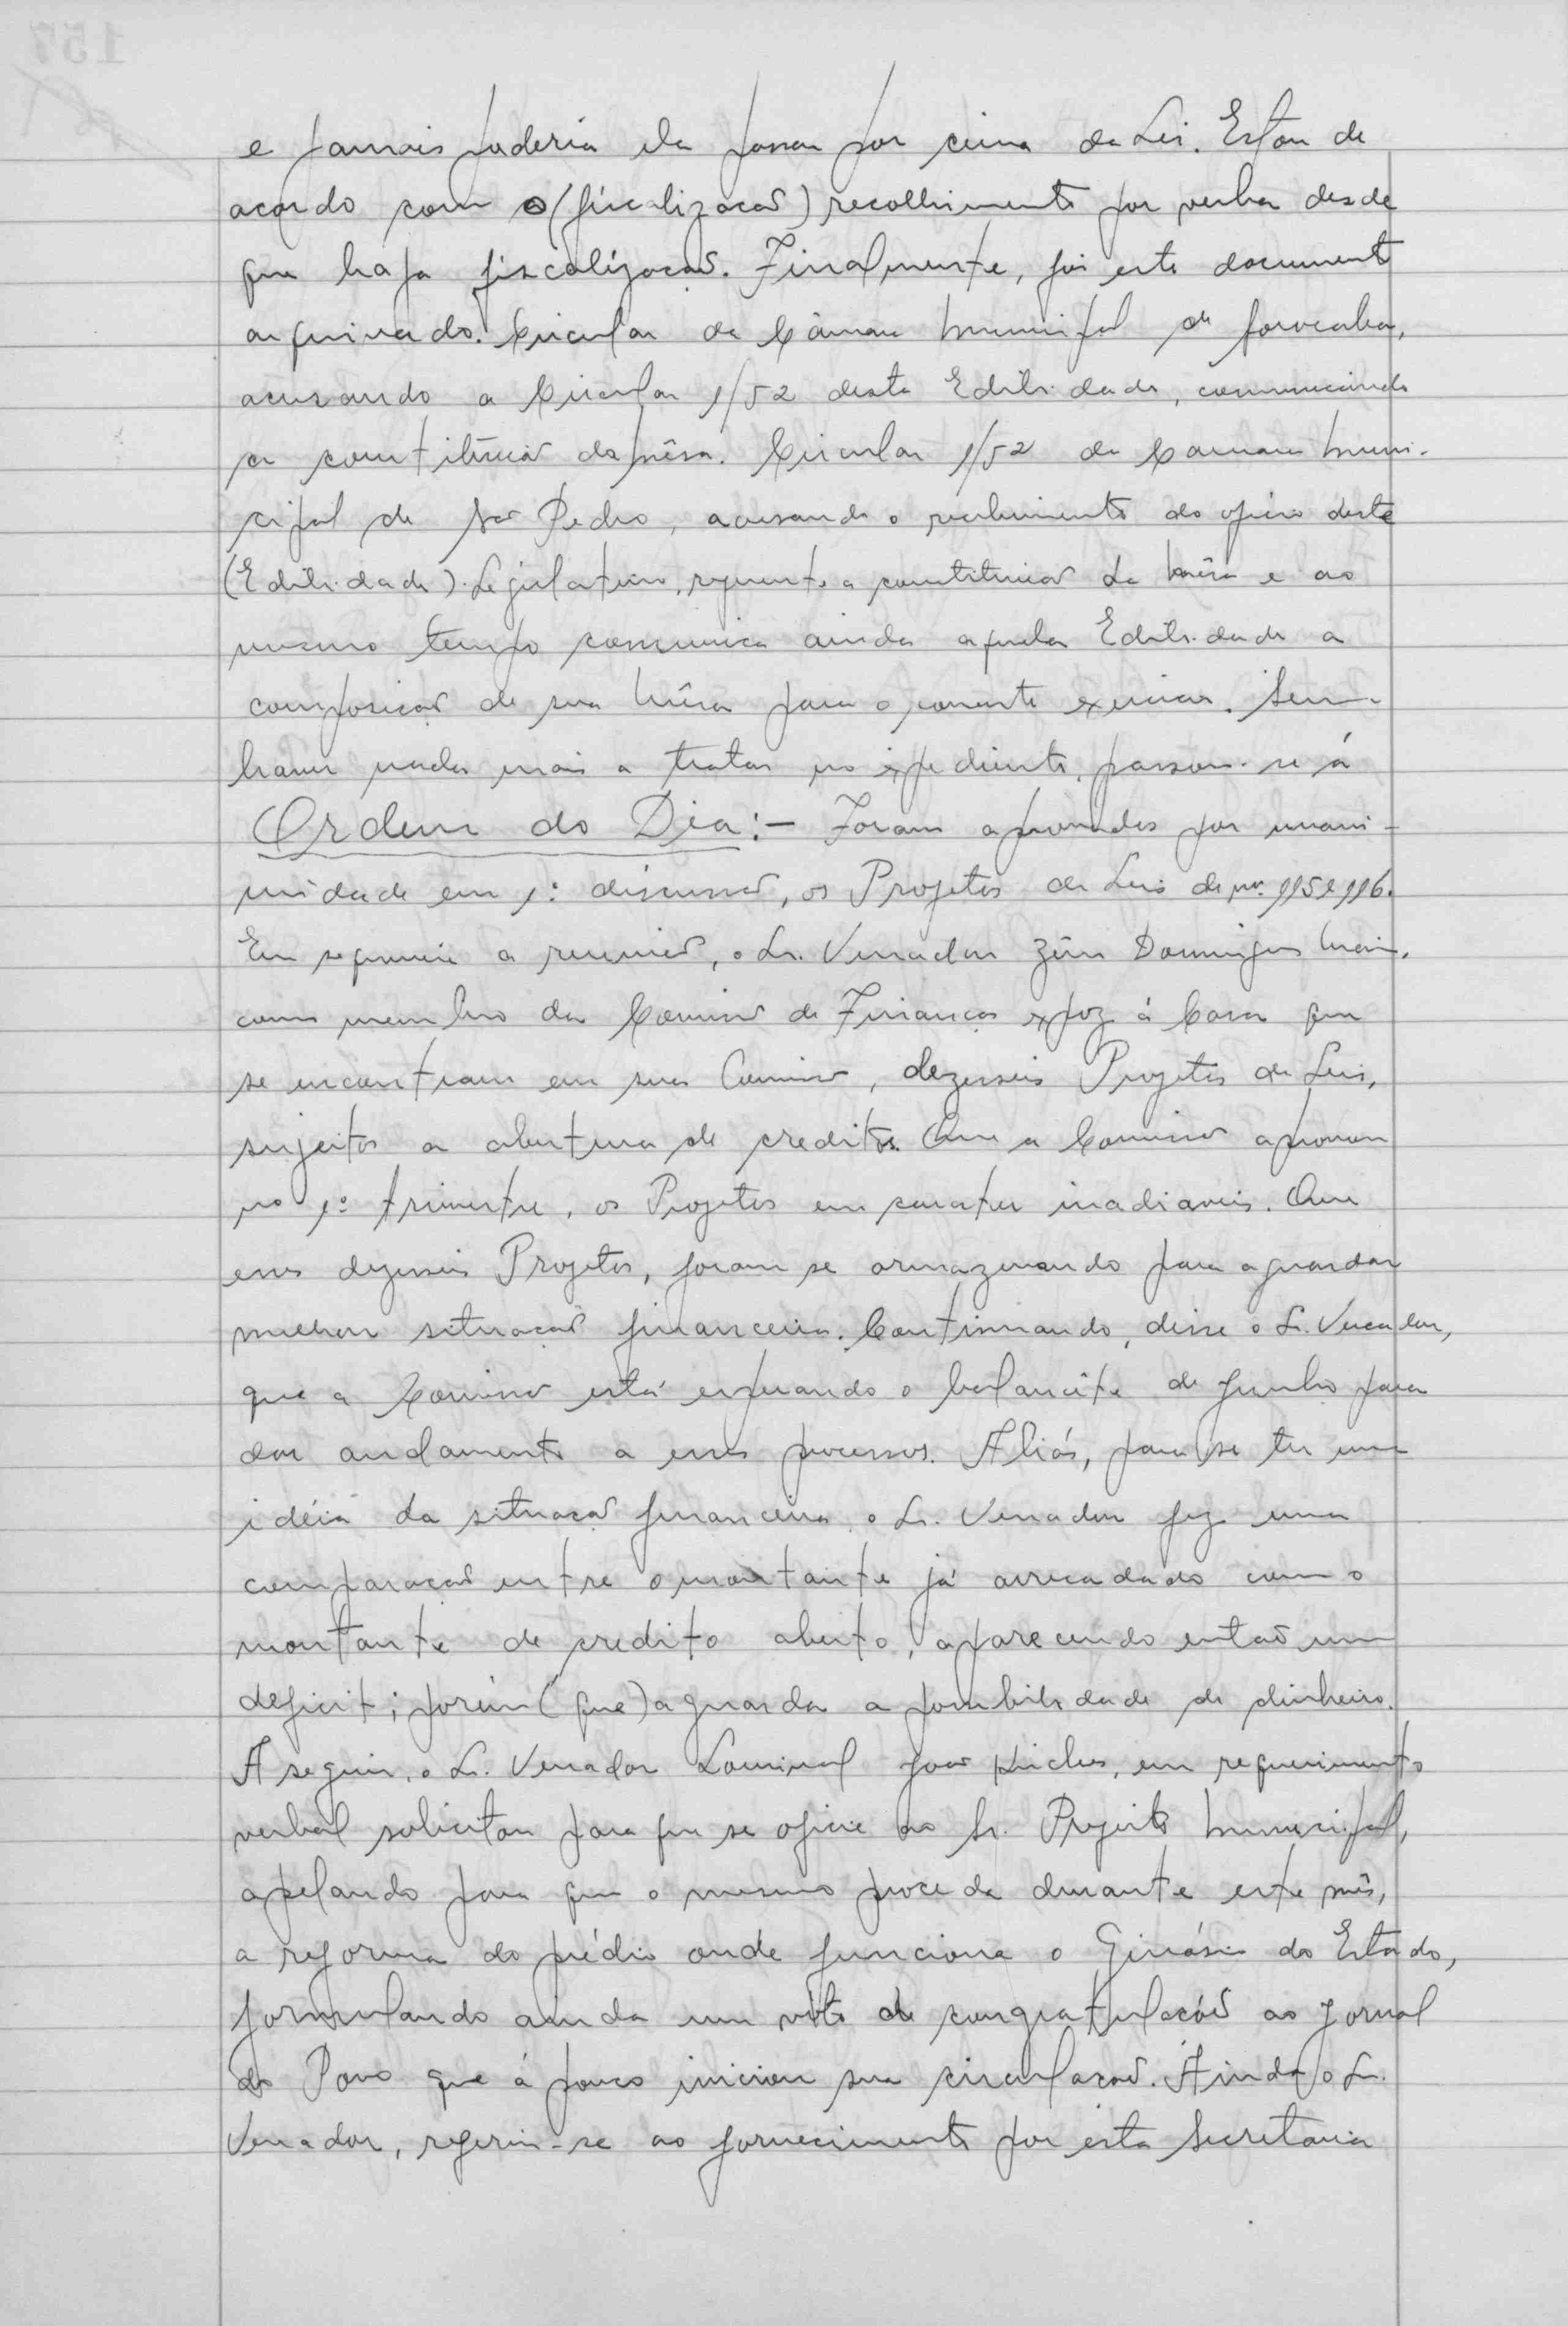 e jamais poderia ela passar por cima da Lei. Estou de
acordo com o (fiscalizacaõ) recolhimento por verba desde
que haja fiscalizacaõ. Finalmente, foi este document
arquivado. Circular da Câmara Municipal de Sorocaba,
acusando a Circular 1/52 desta Edilidade, comunicando
a constituicaõ da mêsa. Circular 1/52 da Camara Muni-
cipal de Saõ Pedro, acusando o recebimento do oficio deste
(Edilidade) Legislativo, a constituicaõ da Mêsa e ao
mesmo tempo comunica ainda aquela Edilidade a
composicaõ de sua Mêsa para o corrente exercicio. Sem
haver nada mais a tratar no expediente, passou-se á
Ordem do Dia:- Foram aprovados por unani-
midade em 1ª discussaõ, os Projetos de Leis de nº. 115 e 116.
Em a reuniaõ, o Sr. Vereador Domingos
como membro da Comissaõ de Finanças expoz á Casa que
se encontram em sua Comissaõ, dezesseis Projetos de Leis,
sujeitos a abertura de creditos. Que a Comissaõ aprovou
no 1º trimestre, os Projetos em carater inadiaveis. Que
esses dezesseis Projetos, foram se armazenando para aguardar
melhor situacaõ financeira. Continuando, disse o Sr. Vereador,
que a Comissaõ está esperando o balancête de Junho para
dar andamento a esses processos. Aliás, para se ter uma
idéia da situacaõ financeira o Sr. Vereador fez uma
comparacaõ entre o montante já arrecadado com o
montante de credito aberto, aparecendo entaõ um
deficit; porém (que) aguarda a possibilidade de dinheiro.
A seguir, o Sr. Vereador Lourival Joaõ, em requerimento
verbal solicitou para que se oficie ao Sr. Prefeito Municipal,
apelando para que o mesmo proceda durante este mês,
a reforma do prédio onde funciona o Ginásio do Estado,
formulando ainda um vóto de congratulacóes ao Jornal
do Povo que á pouco iniciou sua circulacaõ. Ainda o Sr.
Vereador, referiu-se ao fornecimento por esta Secretaria